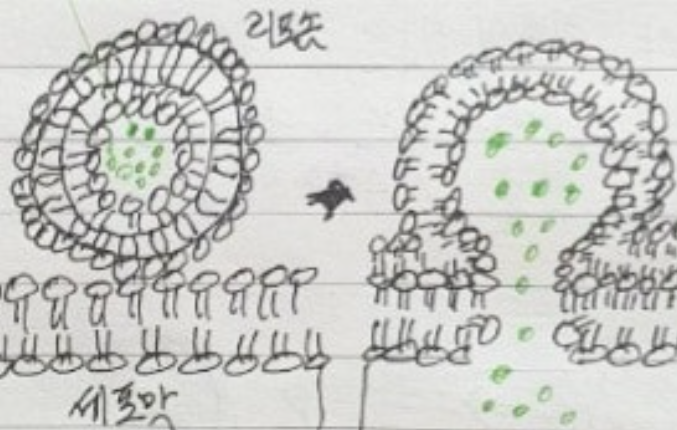 리포솜
세포막